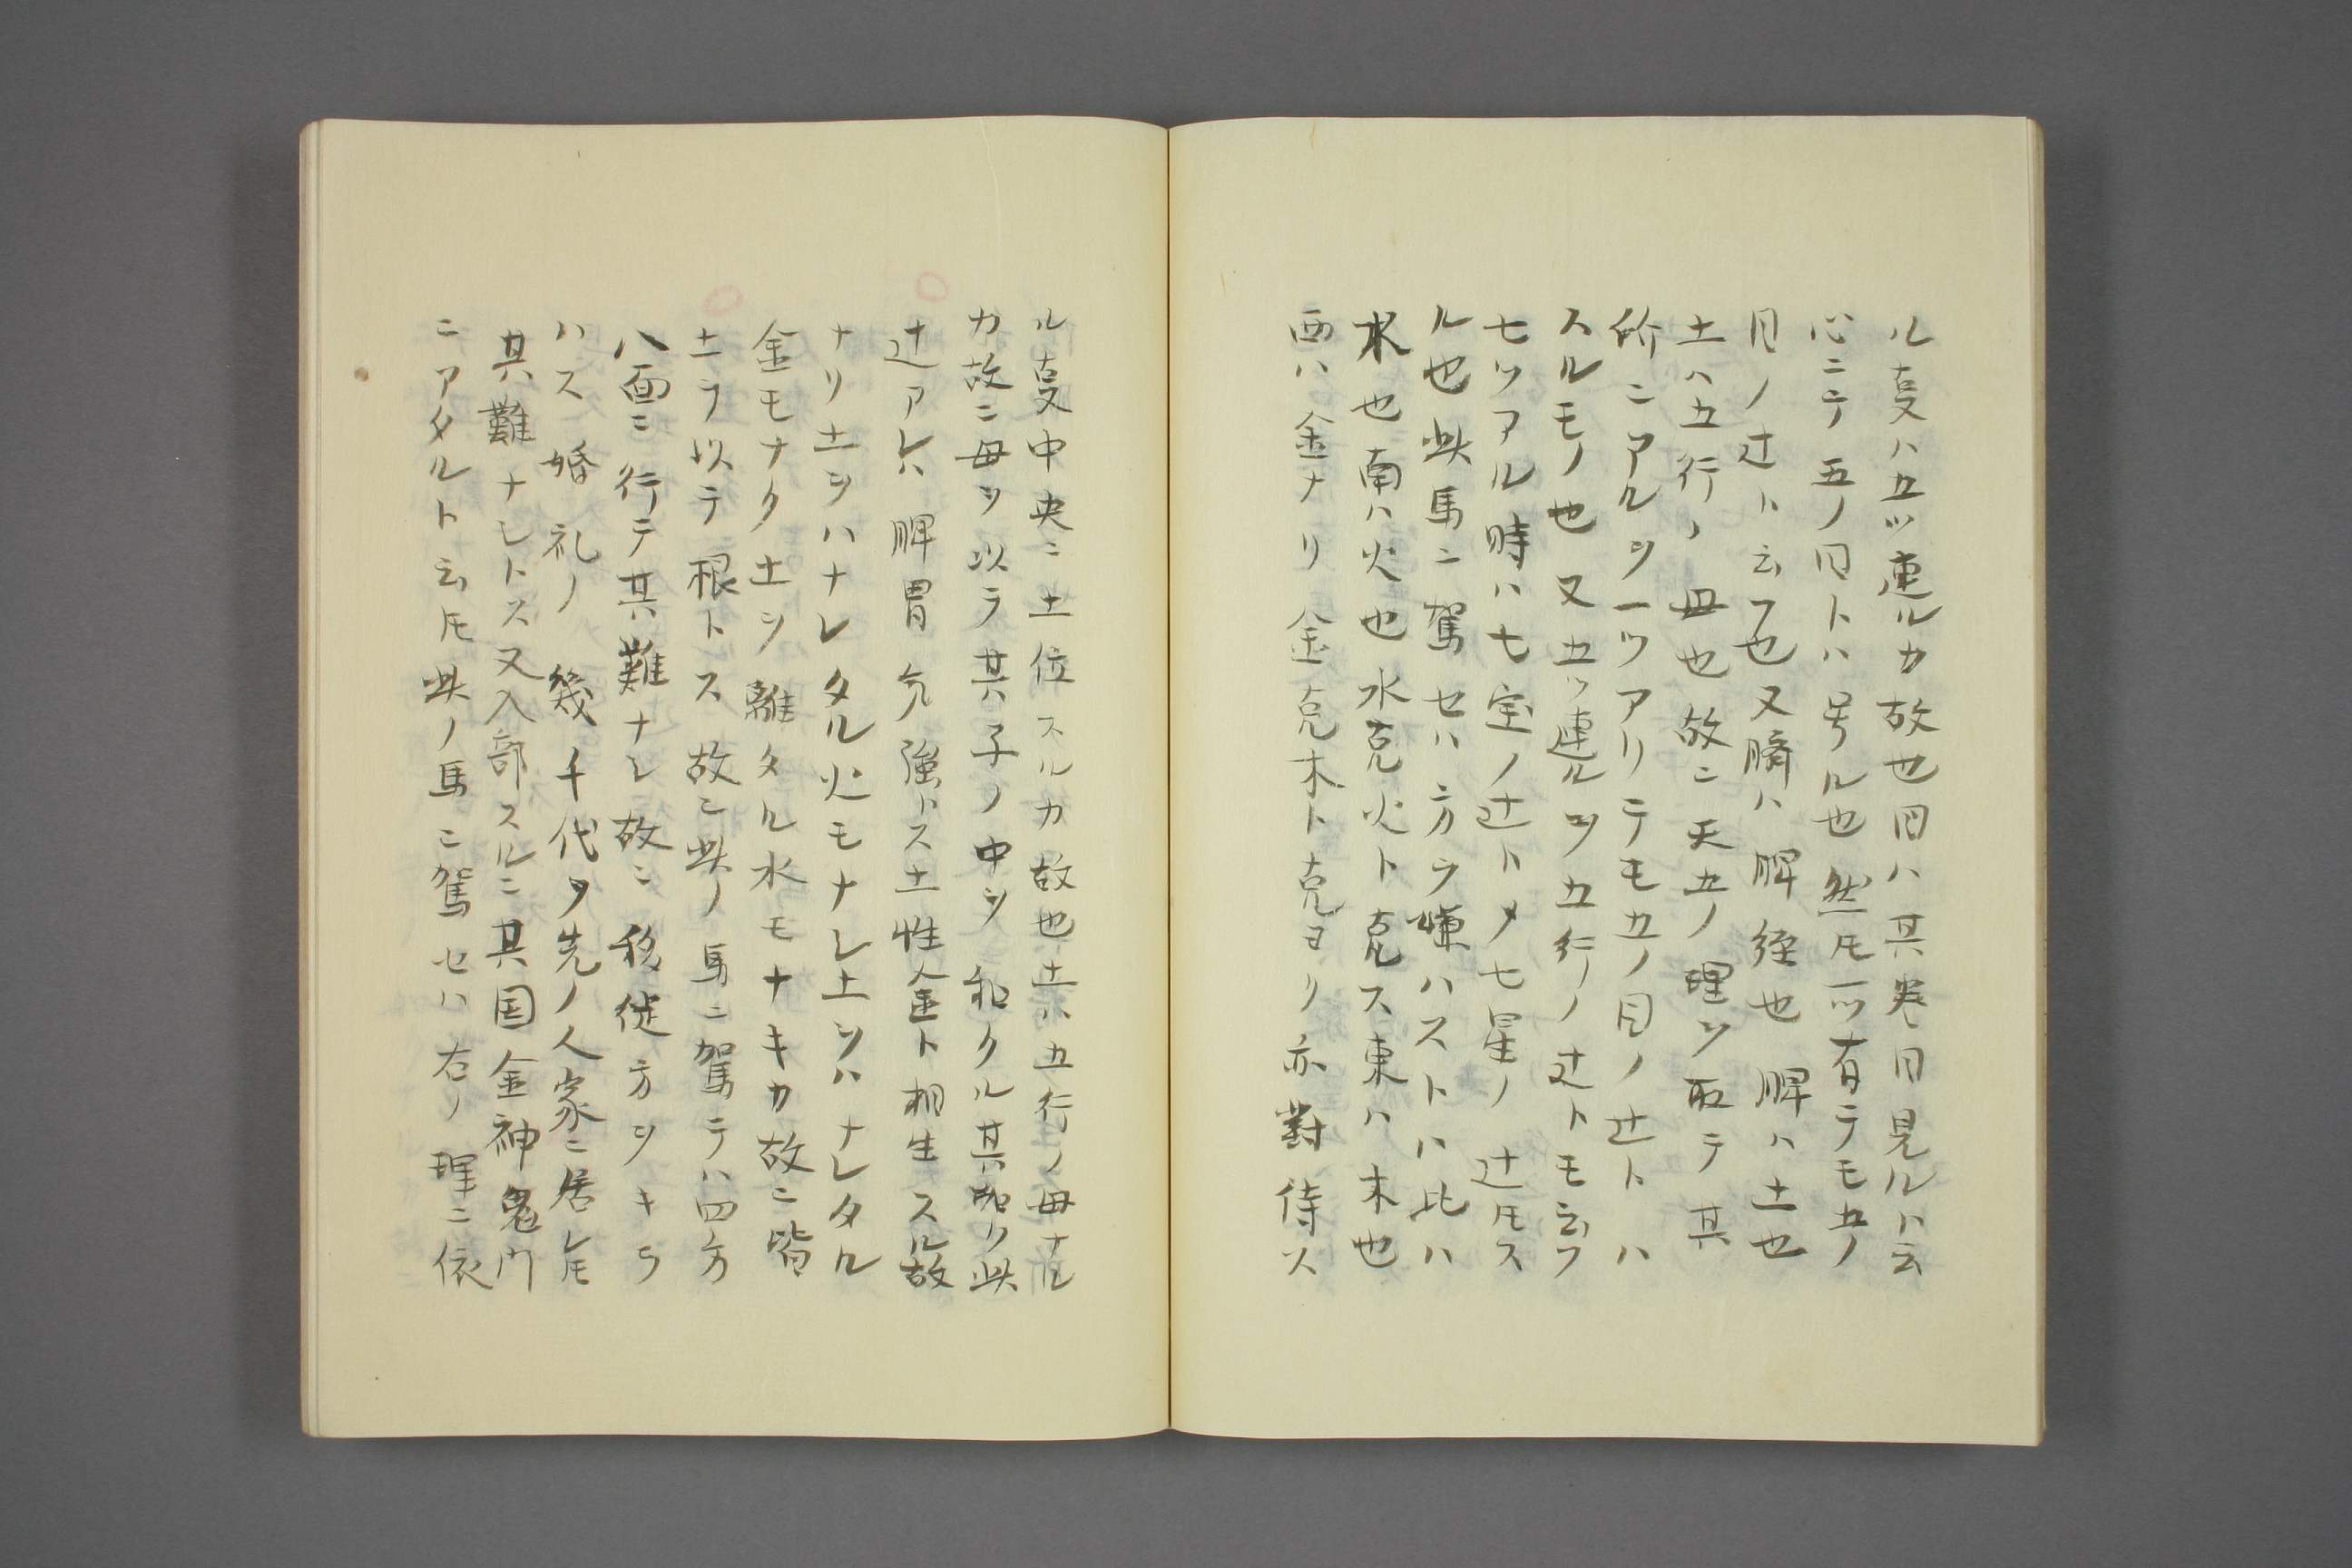 ル叓ハ五ツ連ルカ故也目ハ其巻目見ルハ云
心ニテ五ノ目トハ号ル也然𪜈一ツ有テモ五ノ
目ノ辻ト云フ也又臍ハ脾経也脾ハ土也
土ハ五行ノ母也故ニ天五ノ理ヲ取テ其
所ニアルヲ一ツアリテモ五ノ目ノ辻トハ
スルモノ也又五ツ連ルヲ五行ノ辻トモ云フ
七ツアル時ハ七宝ノ辻トメ七星ノ辻𪜈ス
ル也此馬ニ駕セハ方ヲ嫌ハストハ北ハ
水也南ハ火也水克火ト克ス東ハ木也
西ハ金ナリ金克木ト克ヨリ亦對待ス
ル叓中央ニ土位スルカ故也土ハ五行ノ母ナル
カ故ニ母ヲ以テ其子ノ中ヲ和クル其如ク此
辻アレハ脾胃気強トス土性金ト相生スル故
ナリ土ヲハナレタル火モナシ土ヲハナレタル
金モナク土ヲ離タル水モナキカ故ニ皆
土ヲ以テ根トス故ニ此ノ馬ニ駕テハ四方
八面ニ行テ其難ナシ故ニ移徙方ヲキラ
ハス婚礼ノ幾千代ヲ先ノ人家ニ居レ𪜈
其難ナシトス又入部スルニ其国金神鬼門
ニアタルト云𪜈此ノ馬ニ駕セハ右ノ理ニ依